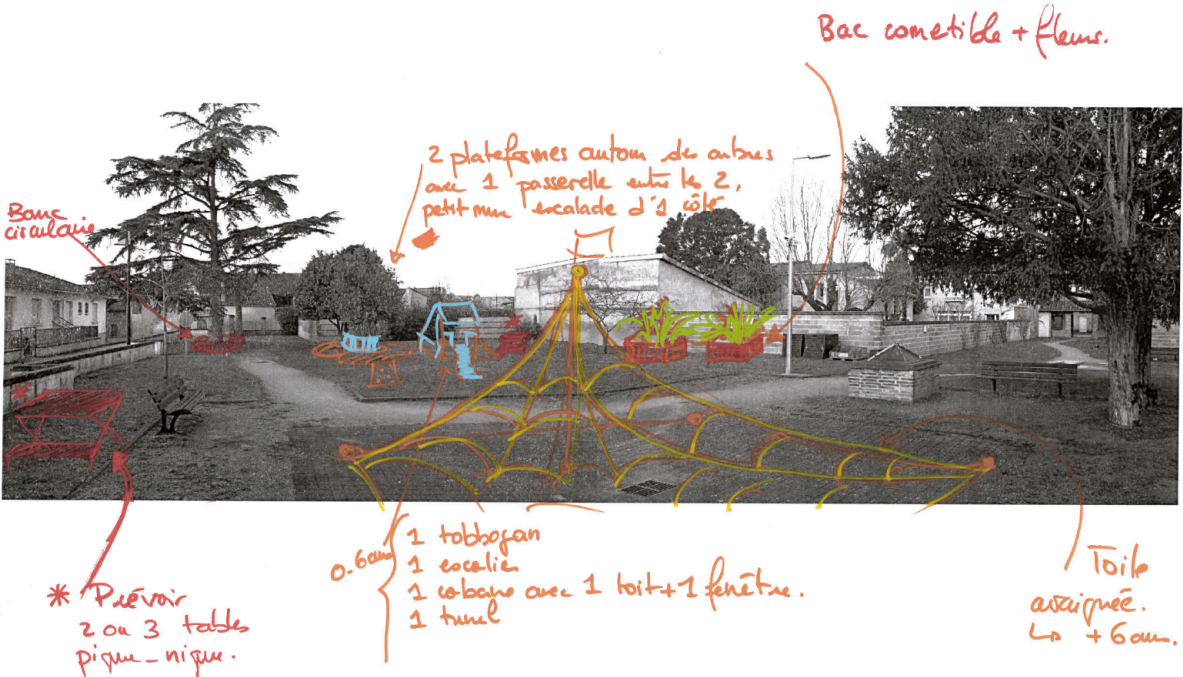 Bac cometible + fleurs.
2 plateformes autour des arbres
avec 1 passerelle entre les 2,
petit mur escalade d'1 côté
Banc
circulaire
0.6ans
1 tobbogan
1 escalier
1 cabane avec 1 toit + 1 fenêtre.
1 tunel
* Prévoir
2 ou 3 tables
pique-nique.
Toile
araignée.
↳ +6 ans.
*